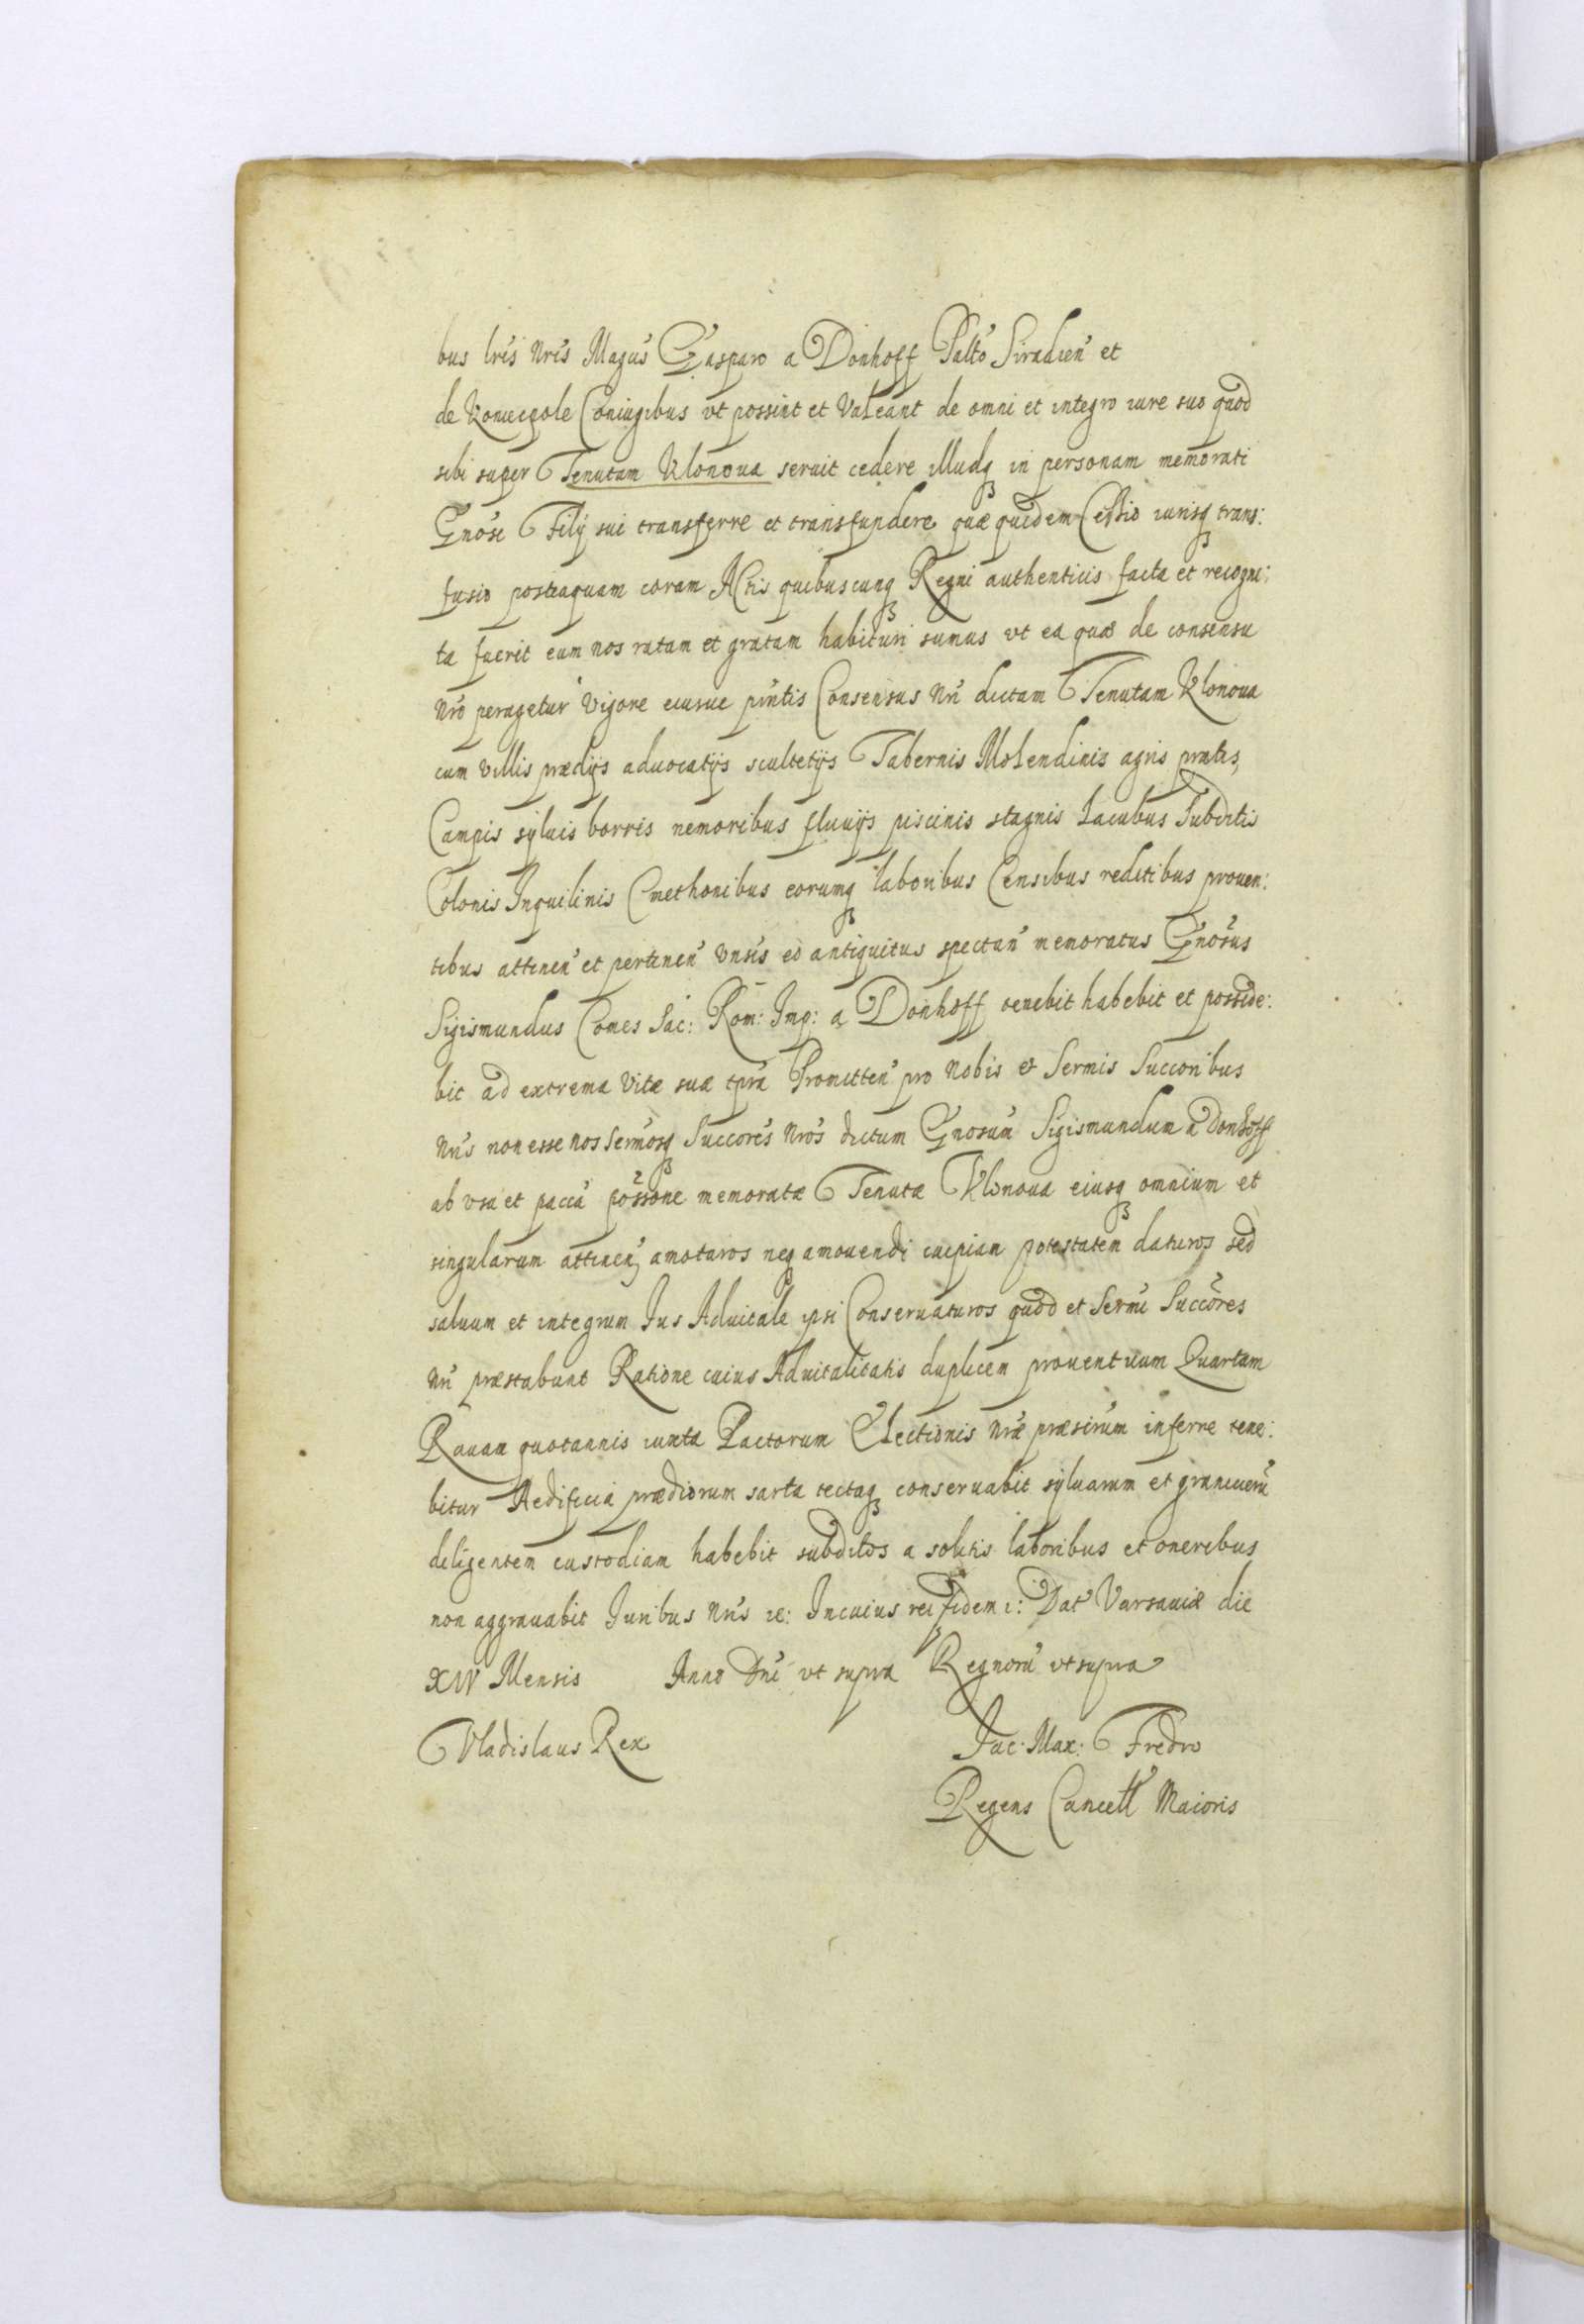 bus lrīs nrīs Magcīs Gasparo a Donhoff Paltō Siradien̄ et
de Koniecpole Coniugibus vt possint et Valeant de omni et integro iure suo quod
sibi super Tenutam Klonoua seruit cedere illudq in personam memorati
Gnosi Filÿ sui transferre et transfundere quæ quidem Cessio iurisq trans:
fusio posteaquam coram Actis quibuscunq Regni authenticis facta et recogni:
ta fuerit eam nos ratam et gratam habituri sumus vt ea quæ de consensu
nrō peragetur Vigore eiusue pn̄tis Consensus nr̄i dictam Tenutam Klonoua
cum Villis prædÿs aduocatÿs scultetÿs Tabernis Molendinis agris pratis,
Campis syluis borris nemoribus fluuÿs piscinis stagnis Lacubus Subditis
Colonis Inquilinis Cmethonibus eorumq laboribus Censibus reditibus prouen:
tibus attinen̄ et pertinen̄ vn̄sis eo antiquitus spectan̄ memoratus Gnōsus
Sigismundus Comes Sac: Rom: Imp: a Donhoff tenebit habebit et posside:
bit ad extrema Vitæ suæ tp̄ra Promitten̄ pro Nobis et Sermis Succoribus
nrīs non esse nos Sermosq Succorēs nrōs dictum Gnosum̄ Sigismundum a Donhoff
ab vsu et paccā pōssone memoratæ Tenutæ Klonoua eiusq omnium et
singularum attinen̄, amoturos neq amouendi cuipiam potestatem daturos sed
saluum et integrum Jus Aduitale ipsi Conseruaturos quod et Sermī Succōres
nr̄i præstabunt Ratione cuius Aduitalitatis duplicem prouentuum Quartam
Rauam quotannis iuxta Pactorum Electionis nr̄æ præscrūm inferre tene:
bitur Aedificia prædiorum sarta tectaq conseruabit syluarum et granicierū
diligentem custodiam habebit subditos a solitis laboribus et oneribus
non aggrauabit Juribus nr̄is &: In cuius rei fidem &: Dat̄ Varsauiæ die
XIV Mensis Anno Dn̄i vt supra Regnorū vt supra
Vladislaus Rex
Jac: Max: Fredro
Regens Cancell̄ Maioris